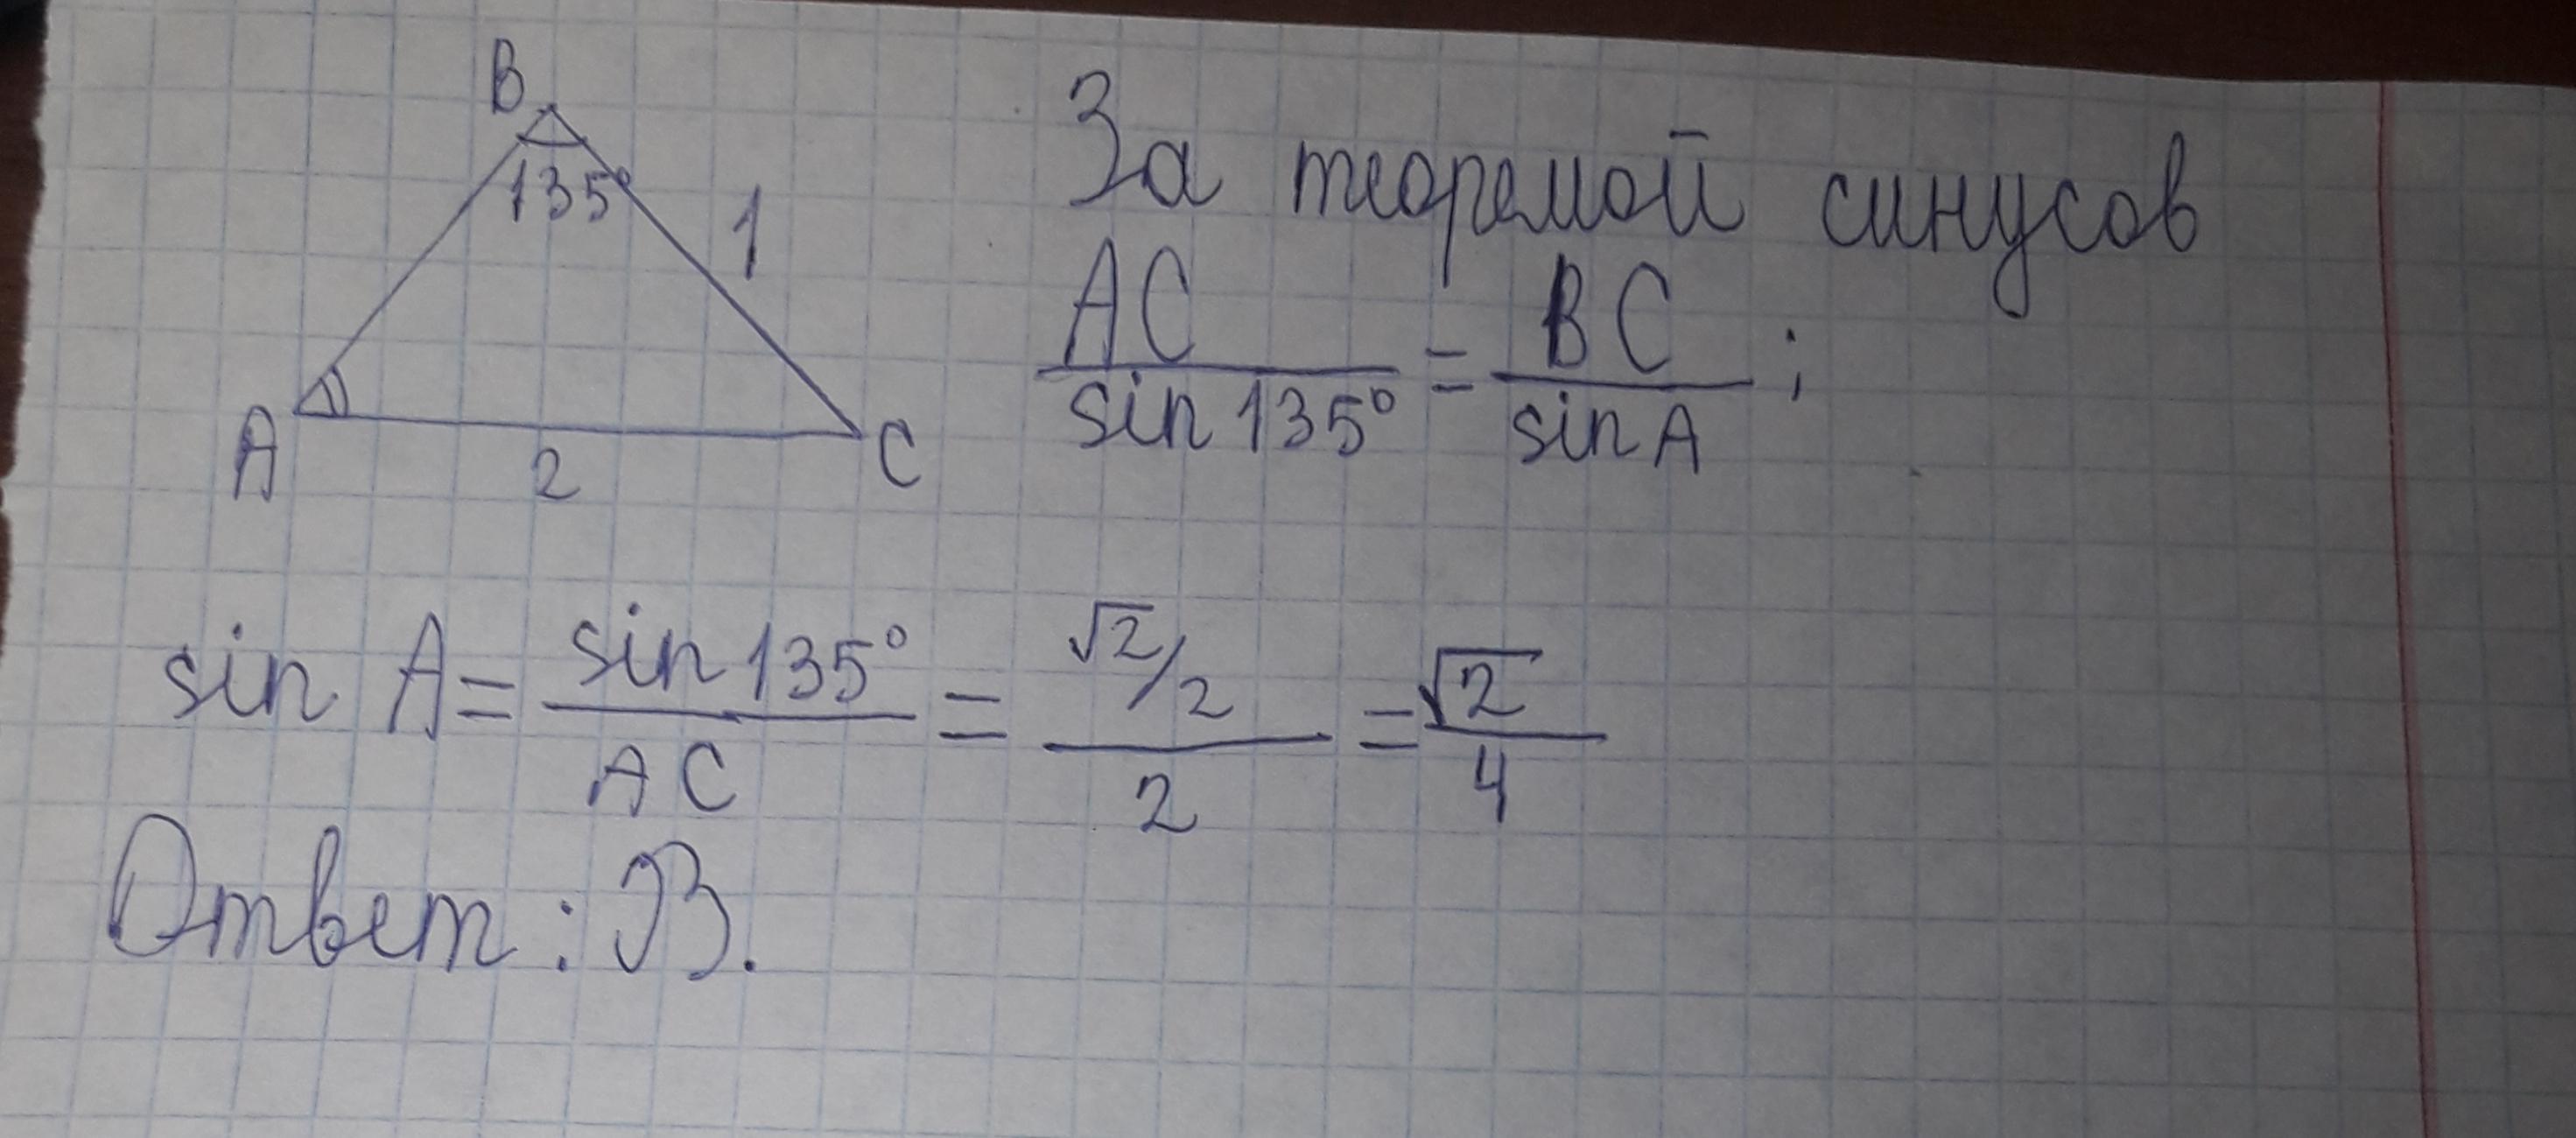 B
135°
1
A
2
C
За теоремой синусов
AC/sin 135° = BC/sin A ;
sin A = sin 135°/AC = √2/2/2 = √2/4
Ответ: В.